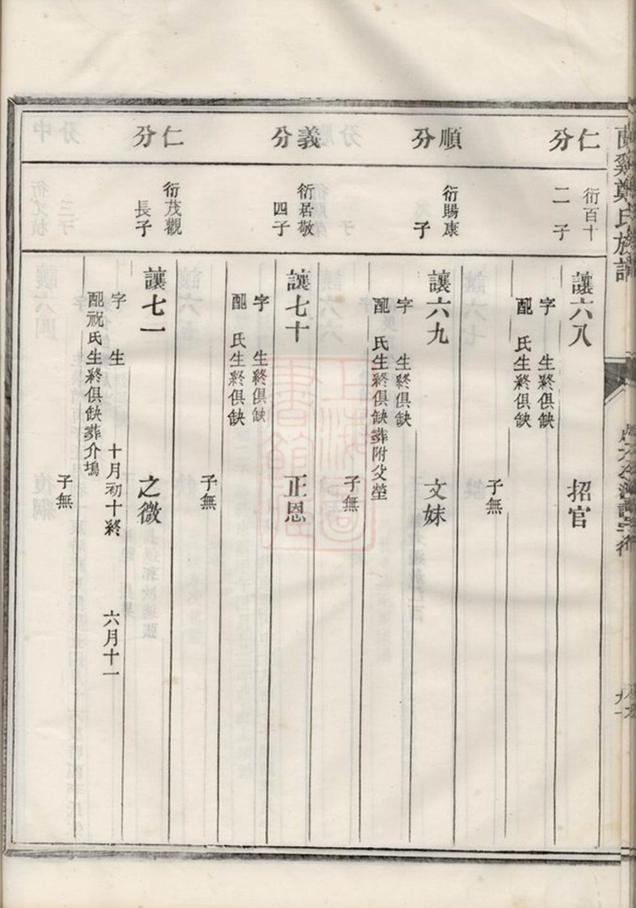 仁分
衍百十
二子
讓六八 招官
字 生終俱缺
配 氏生終俱缺
子無
順分
衍賜康
子
讓六九 文妹
字 生終俱缺
配 氏生終俱缺葬附父塋
子無
義分
衍居敬
四子
讓七十 正恩
字 生終俱缺
配 氏生終俱缺
子無
仁分
衍茂觀
長子
讓七一 之微
字 生 十月初十終 六月十一
配祝氏生終俱缺葬介塢
子無